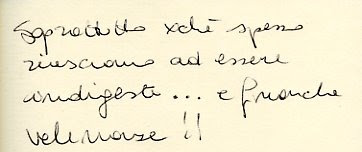 Soprattutto xchè spesso
riescono ad essere
indigesti... e finanche
velenose !!